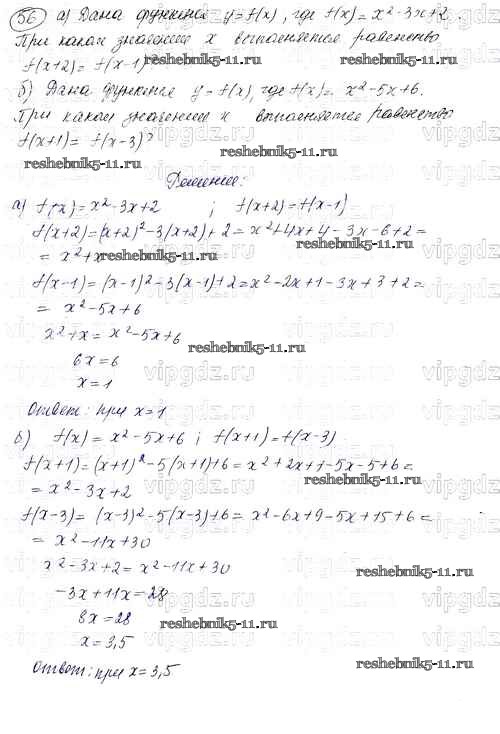 56 а) Дана функция y=f(x), где f(x)=x²-3x+2.
При каком значении x выполняется равенство
f(x+2)=f(x-1)? reshebnik5-11.ru
б) Дана функция y=f(x), где f(x)=x²-5x+6.
При каком значении x выполняется равенство
f(x+1)=f(x-3)? reshebnik5-11.ru
reshebnik5-11.ru
Решение:
а) f(x)=x²-3x+2 ; f(x+2)=f(x-1)
f(x+2)=(x+2)²-3(x+2)+2=x²+4x+4-3x-6+2=
reshebnik5-11.ru
=x²+x reshebnik5-11.ru
f(x-1)=(x-1)²-3(x-1)+2=x²-2x+1-3x+3+2=
=x²-5x+6
x²+x=x²-5x+6
reshebnik5-11.ru
6x=6
x=1
vipgdz.ru vipgdz.ru vipgdz.ru
Ответ: при x=1
б) f(x)=x²-5x+6 ; f(x+1)=f(x-3)
f(x+1)=(x+1)²-5(x+1)+6=x²+2x+1-5x-5+6=
reshebnik5-11.ru
=x²-3x+2
f(x-3)=(x-3)²-5(x-3)+6=x²-6x+9-5x+15+6=
=x²-11x+30
x²-3x+2=x²-11x+30
reshebnik5-11.ru
-3x+11x=28
8x=28
reshebnik5-11.ru
x=3,5
Ответ: при x=3,5
reshebnik5-11.ru